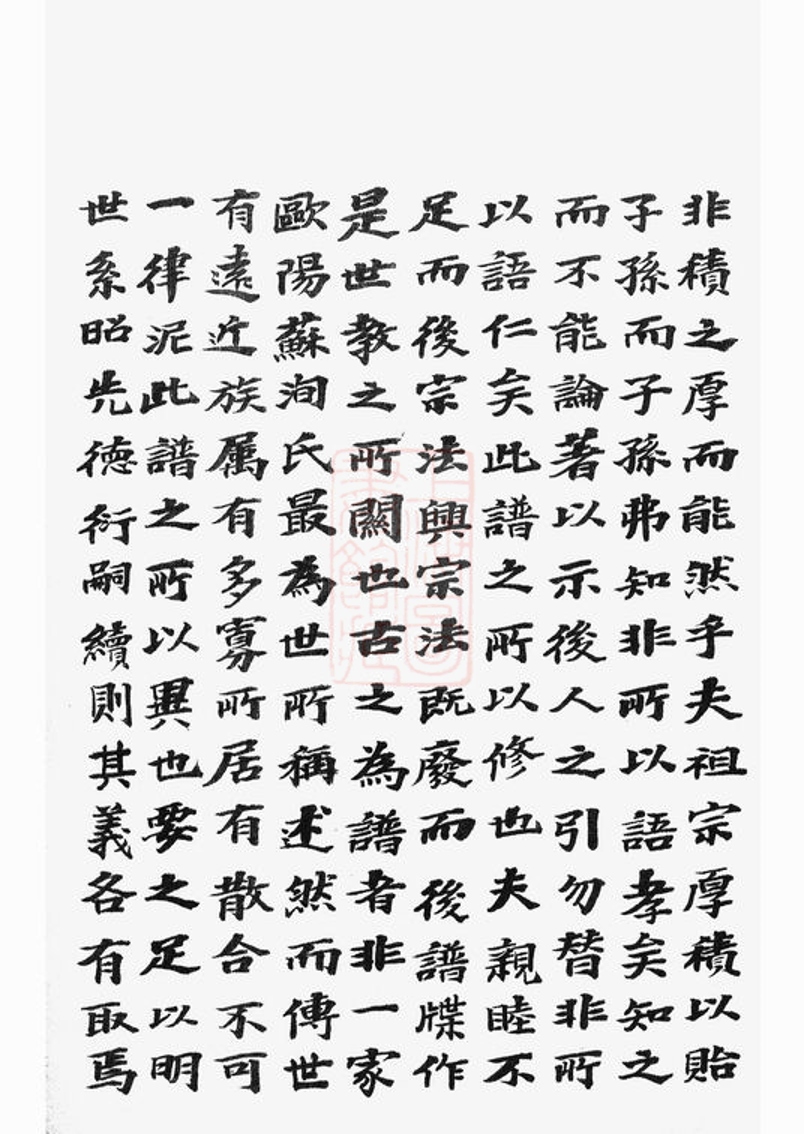 非積之厚而能然乎夫祖宗厚積以貽
子孫而子孫弗知非所以語孝矣知之
而不能論著以示後人之引勿替非所
以語仁矣此譜之所以修也夫親睦不
足而後宗法興宗法既廢而後譜牒作
是世教之所關也古之為譜者非一家
歐陽蘇洵氏最為世所稱述然而傳世
有遠近族属有多寡所居有散合不可
一律泥此譜之所以異也要之足以明
世系昭先德衍嗣續則其義各有取焉